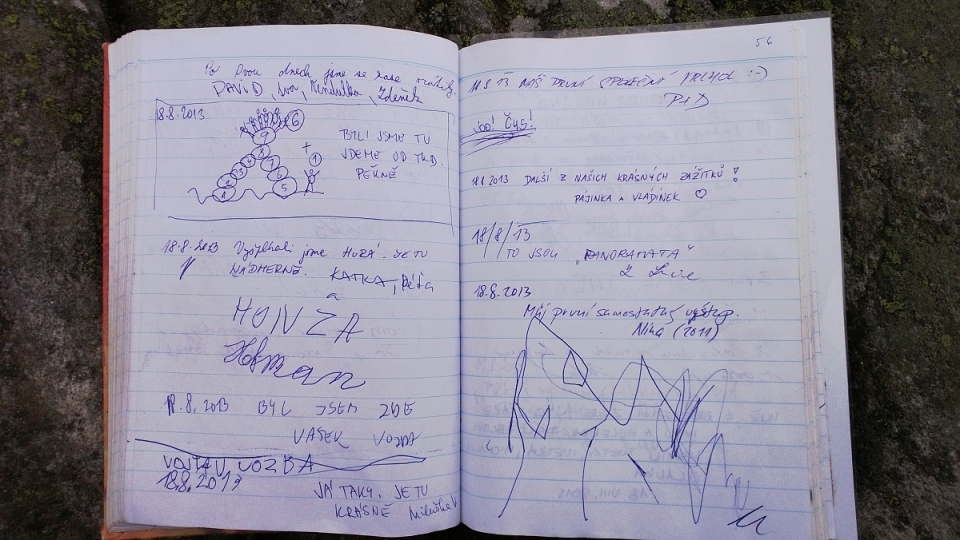 Po dvou dnech jsme se zase vrátily
DAVID, Iva, Vendulka, Zdeněk
18.8.2013
BYLI JSME TU
JDEME OD
PĚKNĚ
18.8.2013 Vyšplhali jsme HURÁ. JE TU
NÁDHERNĚ. KATKA, Péťa
a
HONZA
Hofman
18.8.2013 BYL JSEM ZDE
VAŠEK VOZDA
18.8.2013
JÁ TAKY, JE TU
KRÁSNĚ Miluška V
56
18.8.13 NÁŠ PRVNÍ SPOLEČNÝ :-)
P+D
18.8.2013 DALŠÍ Z NAŠICH KRÁSNÝCH ZÁŽITKŮ!
PÁJINKA A VLÁDÍNEK ♡
18/8/13
TO JSOU „PANORAMATA“
Lucie
18.8.2013
Můj první samostatný výstup.
Nina (2011)